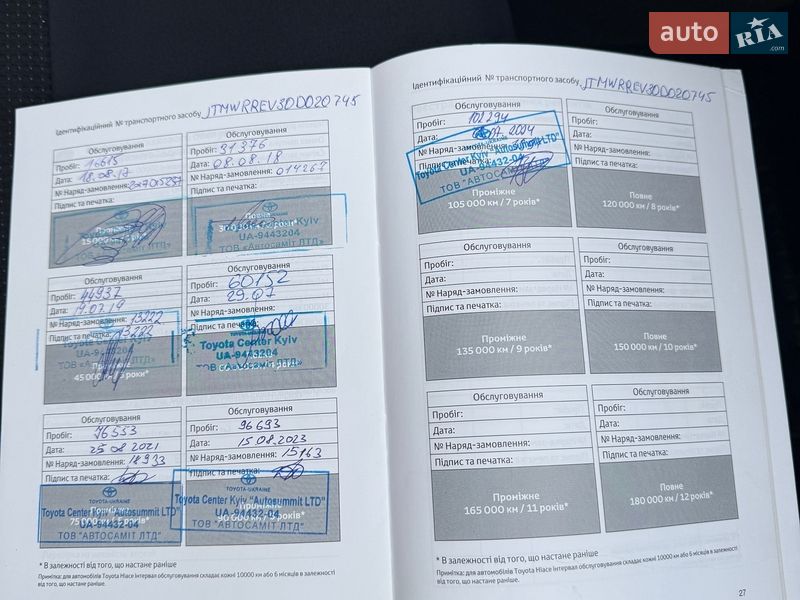 auto RIA.com
Ідентифікаційний № транспортного засобу JTMWRREV30D020745
Обслуговування
Пробіг: 16615
Дата: 18.08.17
№ Наряд-замовлення:
Підпис та печатка:
15 000 км
Обслуговування
Пробіг: 31376
Дата: 08.08.18
№ Наряд-замовлення: 014267
Підпис та печатка:
Kyiv
UA-9443204
ТОВ «Автосаміт ЛТД»
Обслуговування
Пробіг: 44937
Дата:
№ Наряд-замовлення: 13222
Підпис та печатка: 13222
45 000 км
Обслуговування
Пробіг: 60152
Дата: 29.07
№ Наряд-замовлення:
Підпис та печатка:
Toyota Center Kyiv
UA-9443204
ТОВ «Автосаміт ЛТД»
Обслуговування
Пробіг: 76553
Дата: 25 08 2021
№ Наряд-замовлення: 18933
Підпис та печатка:
TOYOTA-UKRAINE
Toyota Center Kyiv "Autosummit LTD"
UA-94432-04
ТОВ "АВТОСАМІТ ЛТД"
Обслуговування
Пробіг: 96693
Дата: 15.08.2023
№ Наряд-замовлення: 15163
Підпис та печатка:
TOYOTA-UKRAINE
Toyota Center Kyiv "Autosummit LTD"
UA-94432-04
ТОВ "АВТОСАМІТ ЛТД"
* В залежності від того, що настане раніше
Примітка: для автомобілів Toyota Hiace інтервал обслуговування складає кожні 10000 км або 6 місяців в залежності
від того, що настане раніше.
Ідентифікаційний № транспортного засобу JTMWRREV30D020745
Обслуговування
Пробіг: 102294
Дата:
№ Наряд-замовлення:
Підпис та печатка:
Toyota Center Kyiv "Autosummit LTD"
UA-94432-04
ТОВ "АВТОСАМІТ ЛТД"
Проміжне
105 000 км / 7 років*
Обслуговування
Пробіг:
Дата:
№ Наряд-замовлення:
Підпис та печатка:
Повне
120 000 км / 8 років*
Обслуговування
Пробіг:
Дата:
№ Наряд-замовлення:
Підпис та печатка:
Проміжне
135 000 км / 9 років*
Обслуговування
Пробіг:
Дата:
№ Наряд-замовлення:
Підпис та печатка:
Повне
150 000 км / 10 років*
Обслуговування
Пробіг:
Дата:
№ Наряд-замовлення:
Підпис та печатка:
Проміжне
165 000 км / 11 років*
Обслуговування
Пробіг:
Дата:
№ Наряд-замовлення:
Підпис та печатка:
Повне
180 000 км / 12 років*
* В залежності від того, що настане раніше
Примітка: для автомобілів Toyota Hiace інтервал обслуговування складає кожні 10000 км або 6 місяців в залежності
від того, що настане раніше.
27